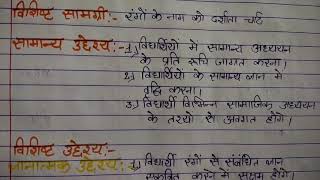 विशिष्ट सामग्री:- रंगों के नाम को दर्शाता चार्ट
सामान्य उद्देश्य:- 1.) विद्यार्थियों में सामान्य अध्ययन
के प्रति रुचि जागृत करना।
2.) विद्यार्थियों के सामान्य ज्ञान में
वृद्धि करना।
3.) विद्यार्थी विभिन्न सामाजिक अध्ययन
के तथ्यों से अवगत होंगे।
विशिष्ट उद्देश्य:-
ज्ञानात्मक उद्देश्य:- 1.) विद्यार्थी रंगों से संबंधित ज्ञान
करने में सक्षम होंगे।